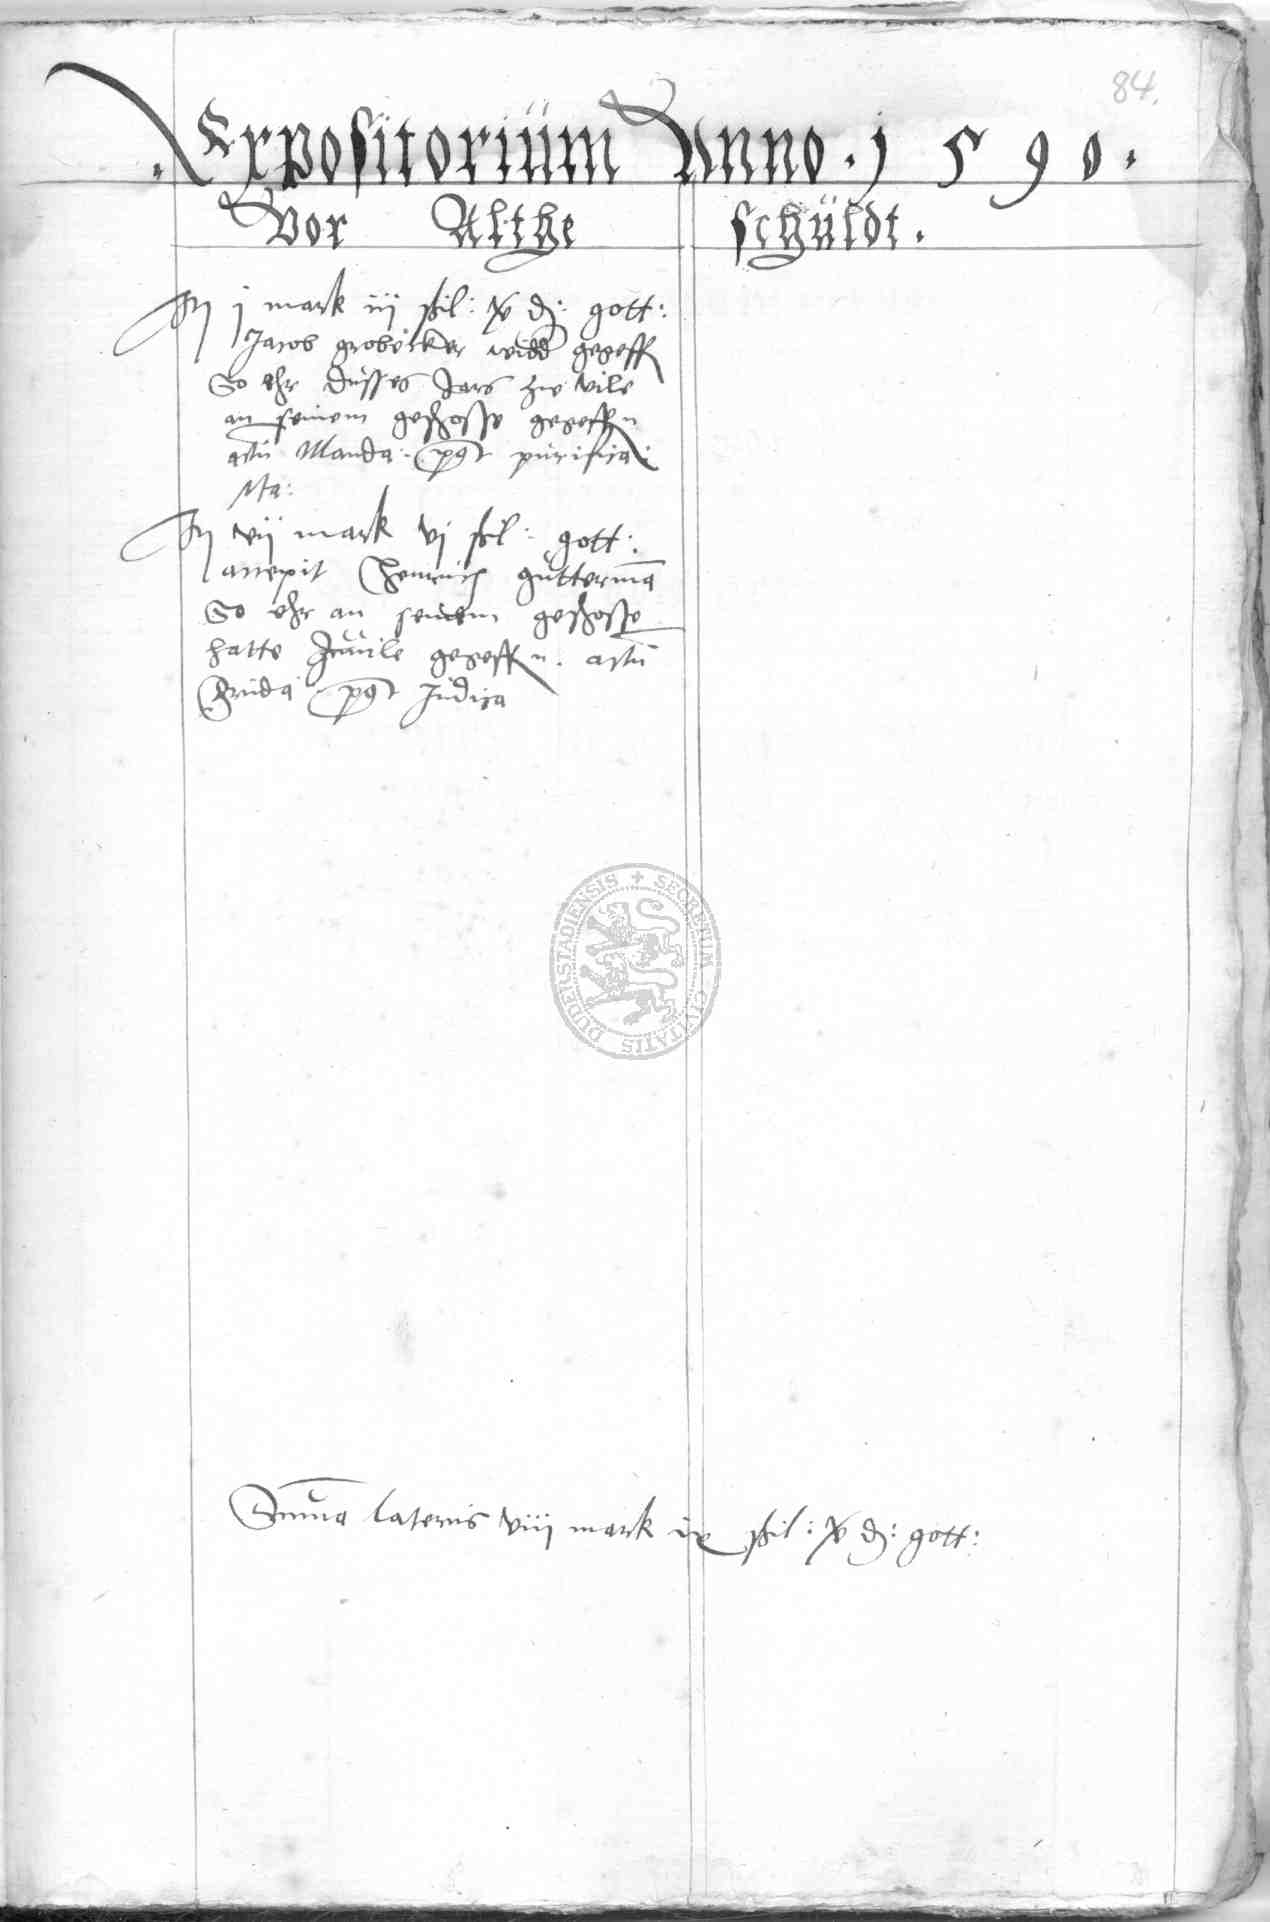 84.
Expositoriüm Anno · 1 5 9 0 ·
Vor Althe schüldt.
j mark iij ßil: x d: gott:
Jacob grobecker widd gegeff
So ehr dusses Jars zw vile
an seinem geschosse gegeffn
actū Manda: post purifica:
Ma:
vij mark vj ßil: gott:
accepit Henrich gutterma
So ehr an seinem geschosse
hatte zuuile gegeffn. actū
post Judica
Suma lateris viij mark ix ßil: x d: gott:
SECRETUM CIVITATIS DUDERSTADIENSIS